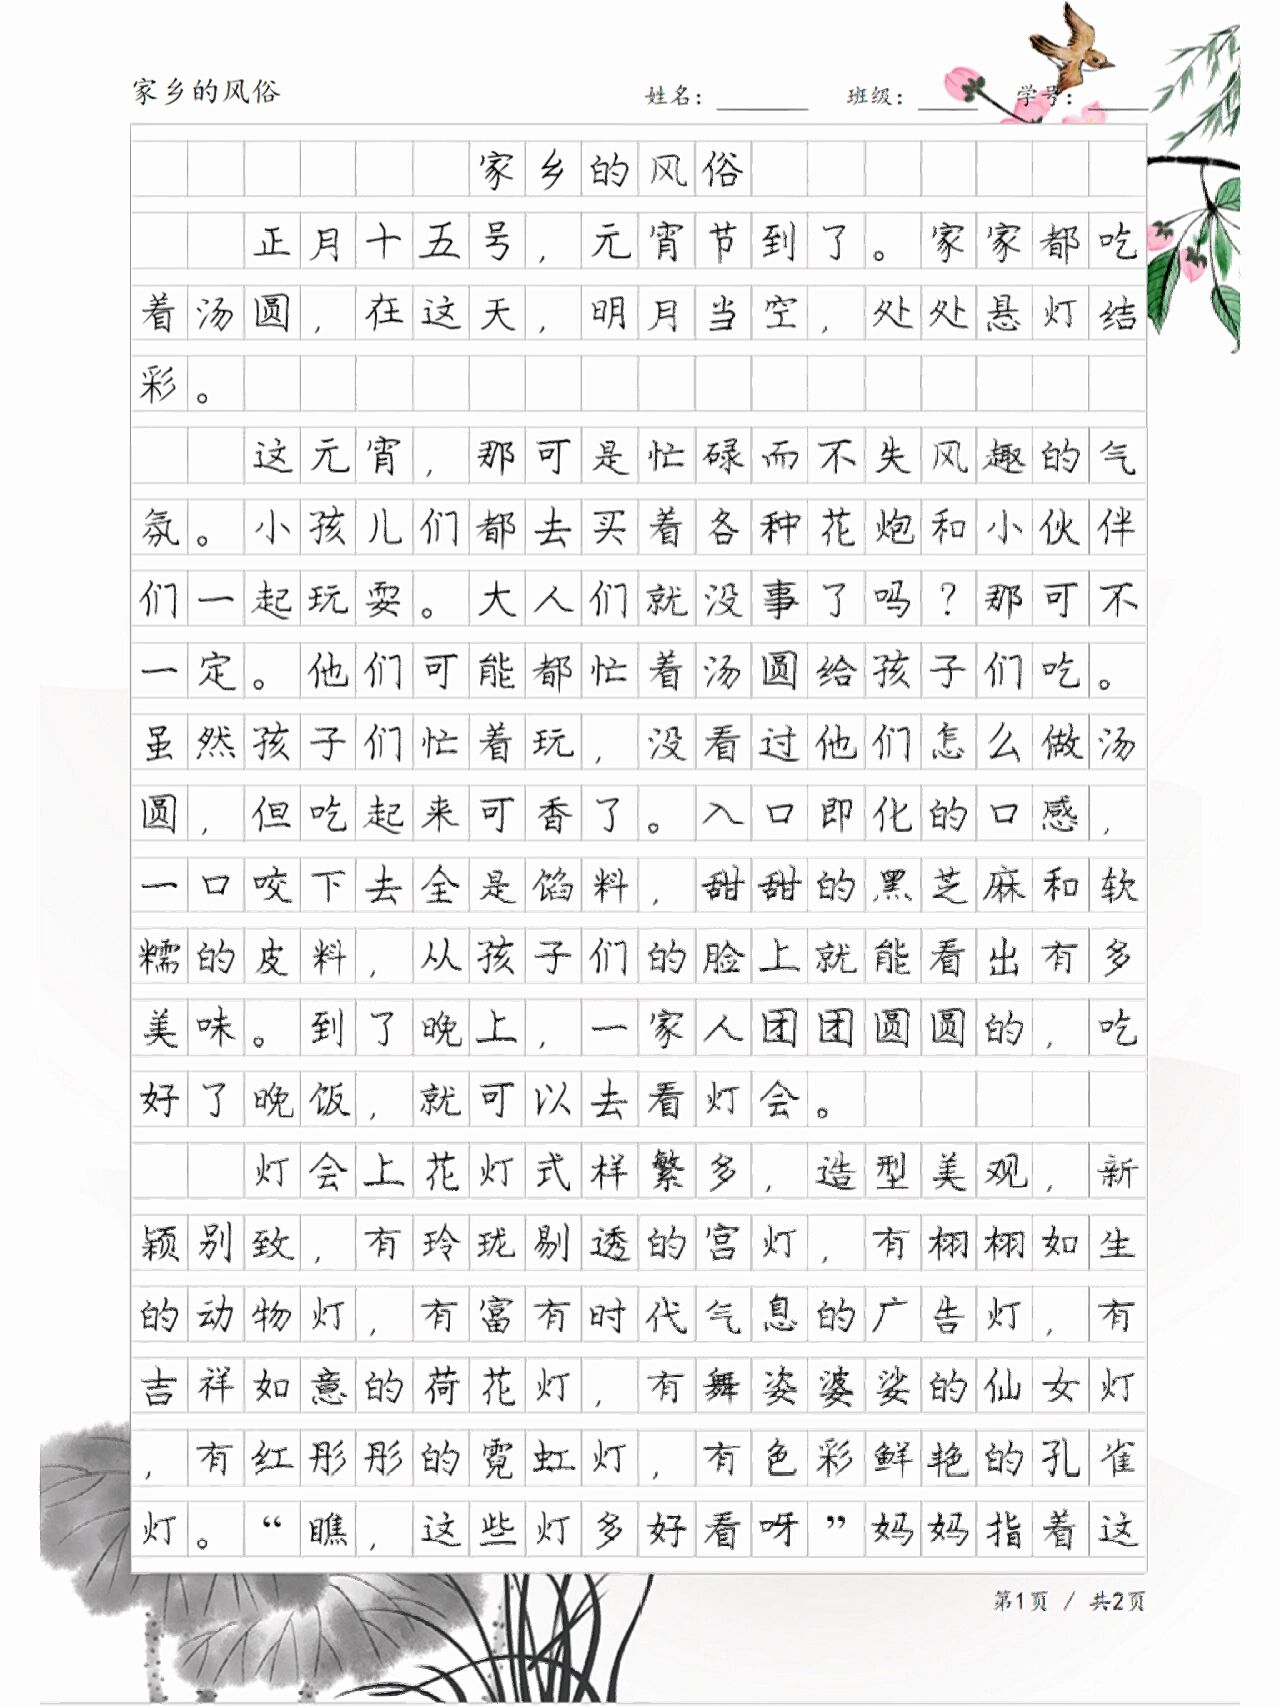 家乡的风俗
姓名：
班级：
学号：
家乡的风俗
正月十五号，元宵节到了。家家都吃
着汤圆，在这天，明月当空，处处悬灯结
彩。
这元宵，那可是忙碌而不失风趣的气
氛。小孩儿们都去买着各种花炮和小伙伴
们一起玩耍。大人们就没事了吗？那可不
一定。他们可能都忙着汤圆给孩子们吃。
虽然孩子们忙着玩，没看过他们怎么做汤
圆，但吃起来可香了。入口即化的口感，
一口咬下去全是馅料，甜甜的黑芝麻和软
糯的皮料，从孩子们的脸上就能看出有多
美味。到了晚上，一家人团团圆圆的，吃
好了晚饭，就可以去看灯会。
灯会上花灯式样繁多，造型美观，新
颖别致，有玲珑剔透的宫灯，有栩栩如生
的动物灯，有富有时代气息的广告灯，有
吉祥如意的荷花灯，有舞姿婆娑的仙女灯
，有红彤彤的霓虹灯，有色彩鲜艳的孔雀
灯。“瞧，这些灯多好看呀”妈妈指着这
第1页 / 共2页